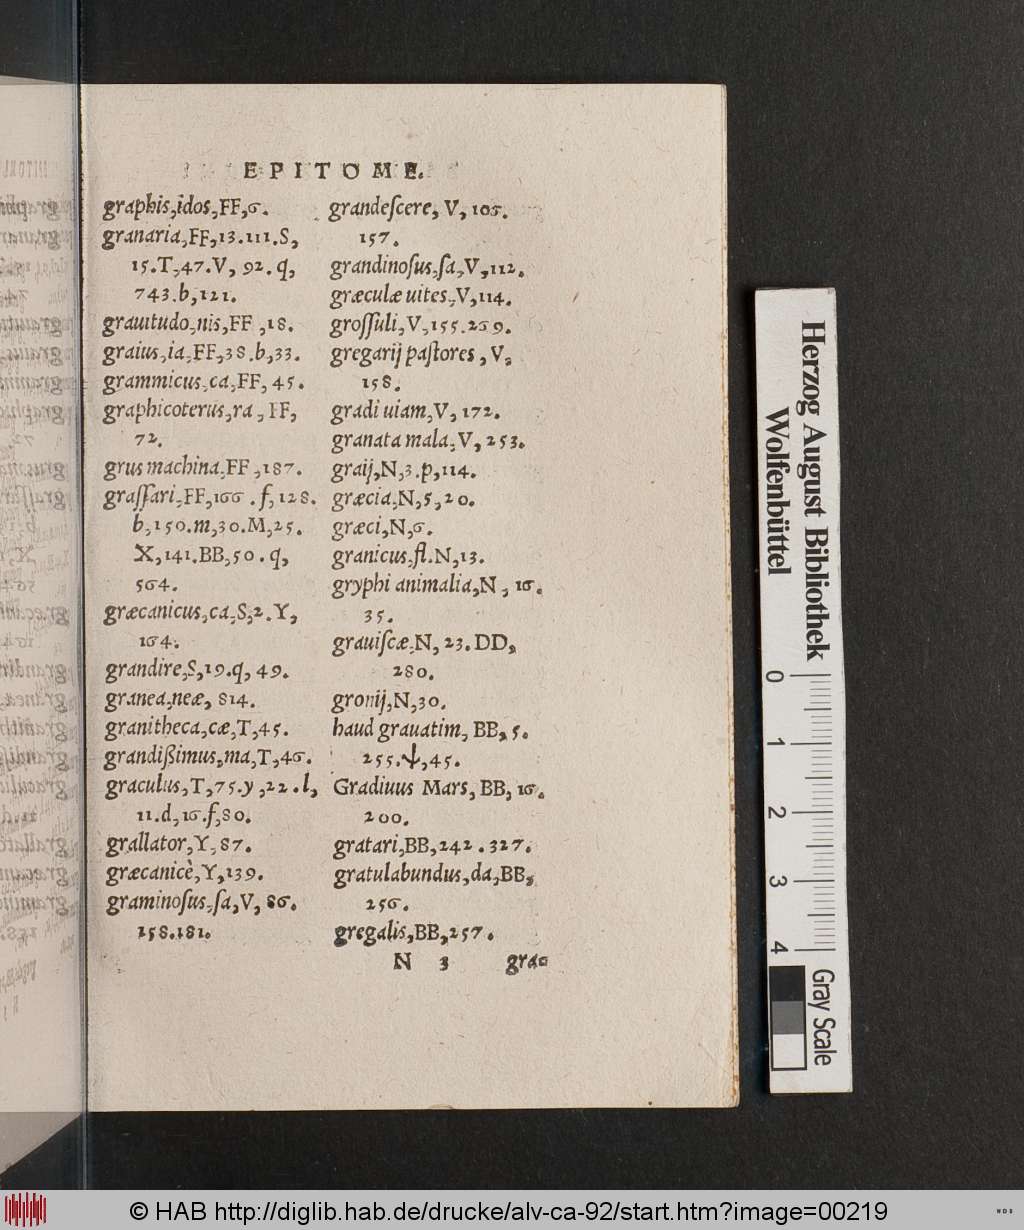 EPITOME.
graphis,idos,FF,6.
granaria,FF,13.111.S,
15.T,47.V, 92.q,
743.b,121.
grauitudo,nis,FF ,18.
graius,ia,FF,38.b,33.
grammicus,ca,FF, 45.
graphicoterus,ra , FF,
72.
grus machina,FF ,187.
graſſari,FF,166 . f,128.
b,150.m,30.M,25.
X,141.BB,50.q,
564.
græcanicus,ca,S,2.Y,
164.
grandire,S,19.q, 49.
granea,neæ, 814.
granitheca,cæ,T,45.
grandißimus,ma,T,46.
graculus,T,75.y ,22.l,
11.d,16.f,80.
grallator,Y,87.
græcanicè,Y,139.
graminoſus,ſa,V, 86.
158.181.
grandeſcere, V, 106.
157.
grandinoſus,ſa,V,112.
græculæ uites,V,114.
groſſuli,V,155.269.
gregarij paſtores , V,
158.
gradi uiam,V, 172.
granata mala,V, 253.
graij,N,3.p,114.
græcia,N,5,20.
græci,N,6.
granicus,fl.N,13.
gryphi animalia,N , 16.
35.
grauiſcæ,N, 23.DD,
280.
gronij,N,30.
haud grauatim, BB, 5.
255.ψ,45.
Gradiuus Mars, BB, 16.
200.
gratari,BB,242 . 327.
gratulabundus,da,BB,
256.
gregalis,BB,257.
N 3 gra-
Herzog August Bibliothek
Wolfenbüttel
0 1 2 3 4
Gray Scale
© HAB http://diglib.hab.de/drucke/alv-ca-92/start.htm?image=00219